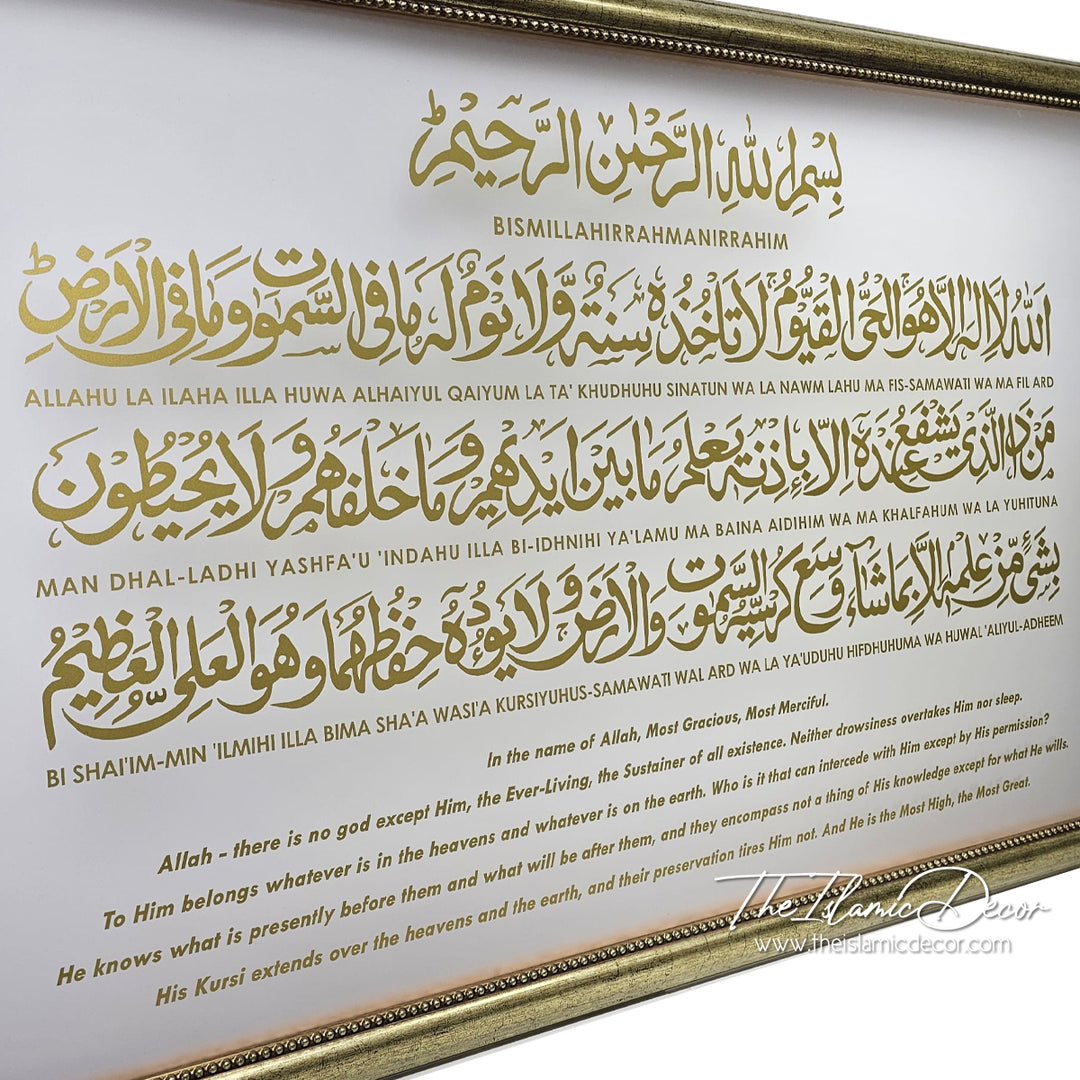 بِسْمِ اللهِ الرَّحْمٰنِ الرَّحِيْمِ
BISMILLAHIRRAHMANIRRAHIM
اَللهُ لَا اِلٰهَ اِلَّا هُوَ الْحَىُّ الْقَيُّوْمُ لَا تَاْخُذُهٗ سِنَةٌ وَّلَا نَوْمٌ لَهٗ مَا فِى السَّمٰوٰتِ وَمَا فِى الْاَرْضِ ط
ALLAHU LA ILAHA ILLA HUWA ALHAIYUL QAIYUM LA TA' KHUDHUHU SINATUN WA LA NAWM LAHU MA FIS-SAMAWATI WA MA FIL ARD
مَنْ ذَا الَّذِىْ يَشْفَعُ عِنْدَهٗ اِلَّا بِاِذْنِهٖ يَعْلَمُ مَا بَيْنَ اَيْدِيْهِمْ وَمَا خَلْفَهُمْ وَلَا يُحِيْطُوْنَ
MAN DHAL-LADHI YASHFA'U 'INDAHU ILLA BI-IDHNIHI YA'LAMU MA BAINA AIDIHIM WA MA KHALFAHUM WA LA YUHITUNA
بِشَىْءٍ مِّنْ عِلْمِهٖ اِلَّا بِمَا شَاءَ وَسِعَ كُرْسِيُّهُ السَّمٰوٰتِ وَالْاَرْضَ وَلَا يَئُوْدُهٗ حِفْظُهُمَا وَهُوَ الْعَلِىُّ الْعَظِيْمُ
BI SHAI'IM-MIN 'ILMIHI ILLA BIMA SHA'A WASI'A KURSIYUHUS-SAMAWATI WAL ARD WA LA YA'UDUHU HIFDHUHUMA WA HUWAL 'ALIYUL-ADHEEM
In the name of Allah, Most Gracious, Most Merciful.
Allah – there is no god except Him, the Ever-Living, the Sustainer of all existence. Neither drowsiness overtakes Him nor sleep.
To Him belongs whatever is in the heavens and whatever is on the earth. Who is it that can intercede with Him except by His permission?
He knows what is presently before them and what will be after them, and they encompass not a thing of His knowledge except for what He wills.
His Kursi extends over the heavens and the earth, and their preservation tires Him not. And He is the Most High, the Most Great.
The Islamic Decor
www.theislamicdecor.com